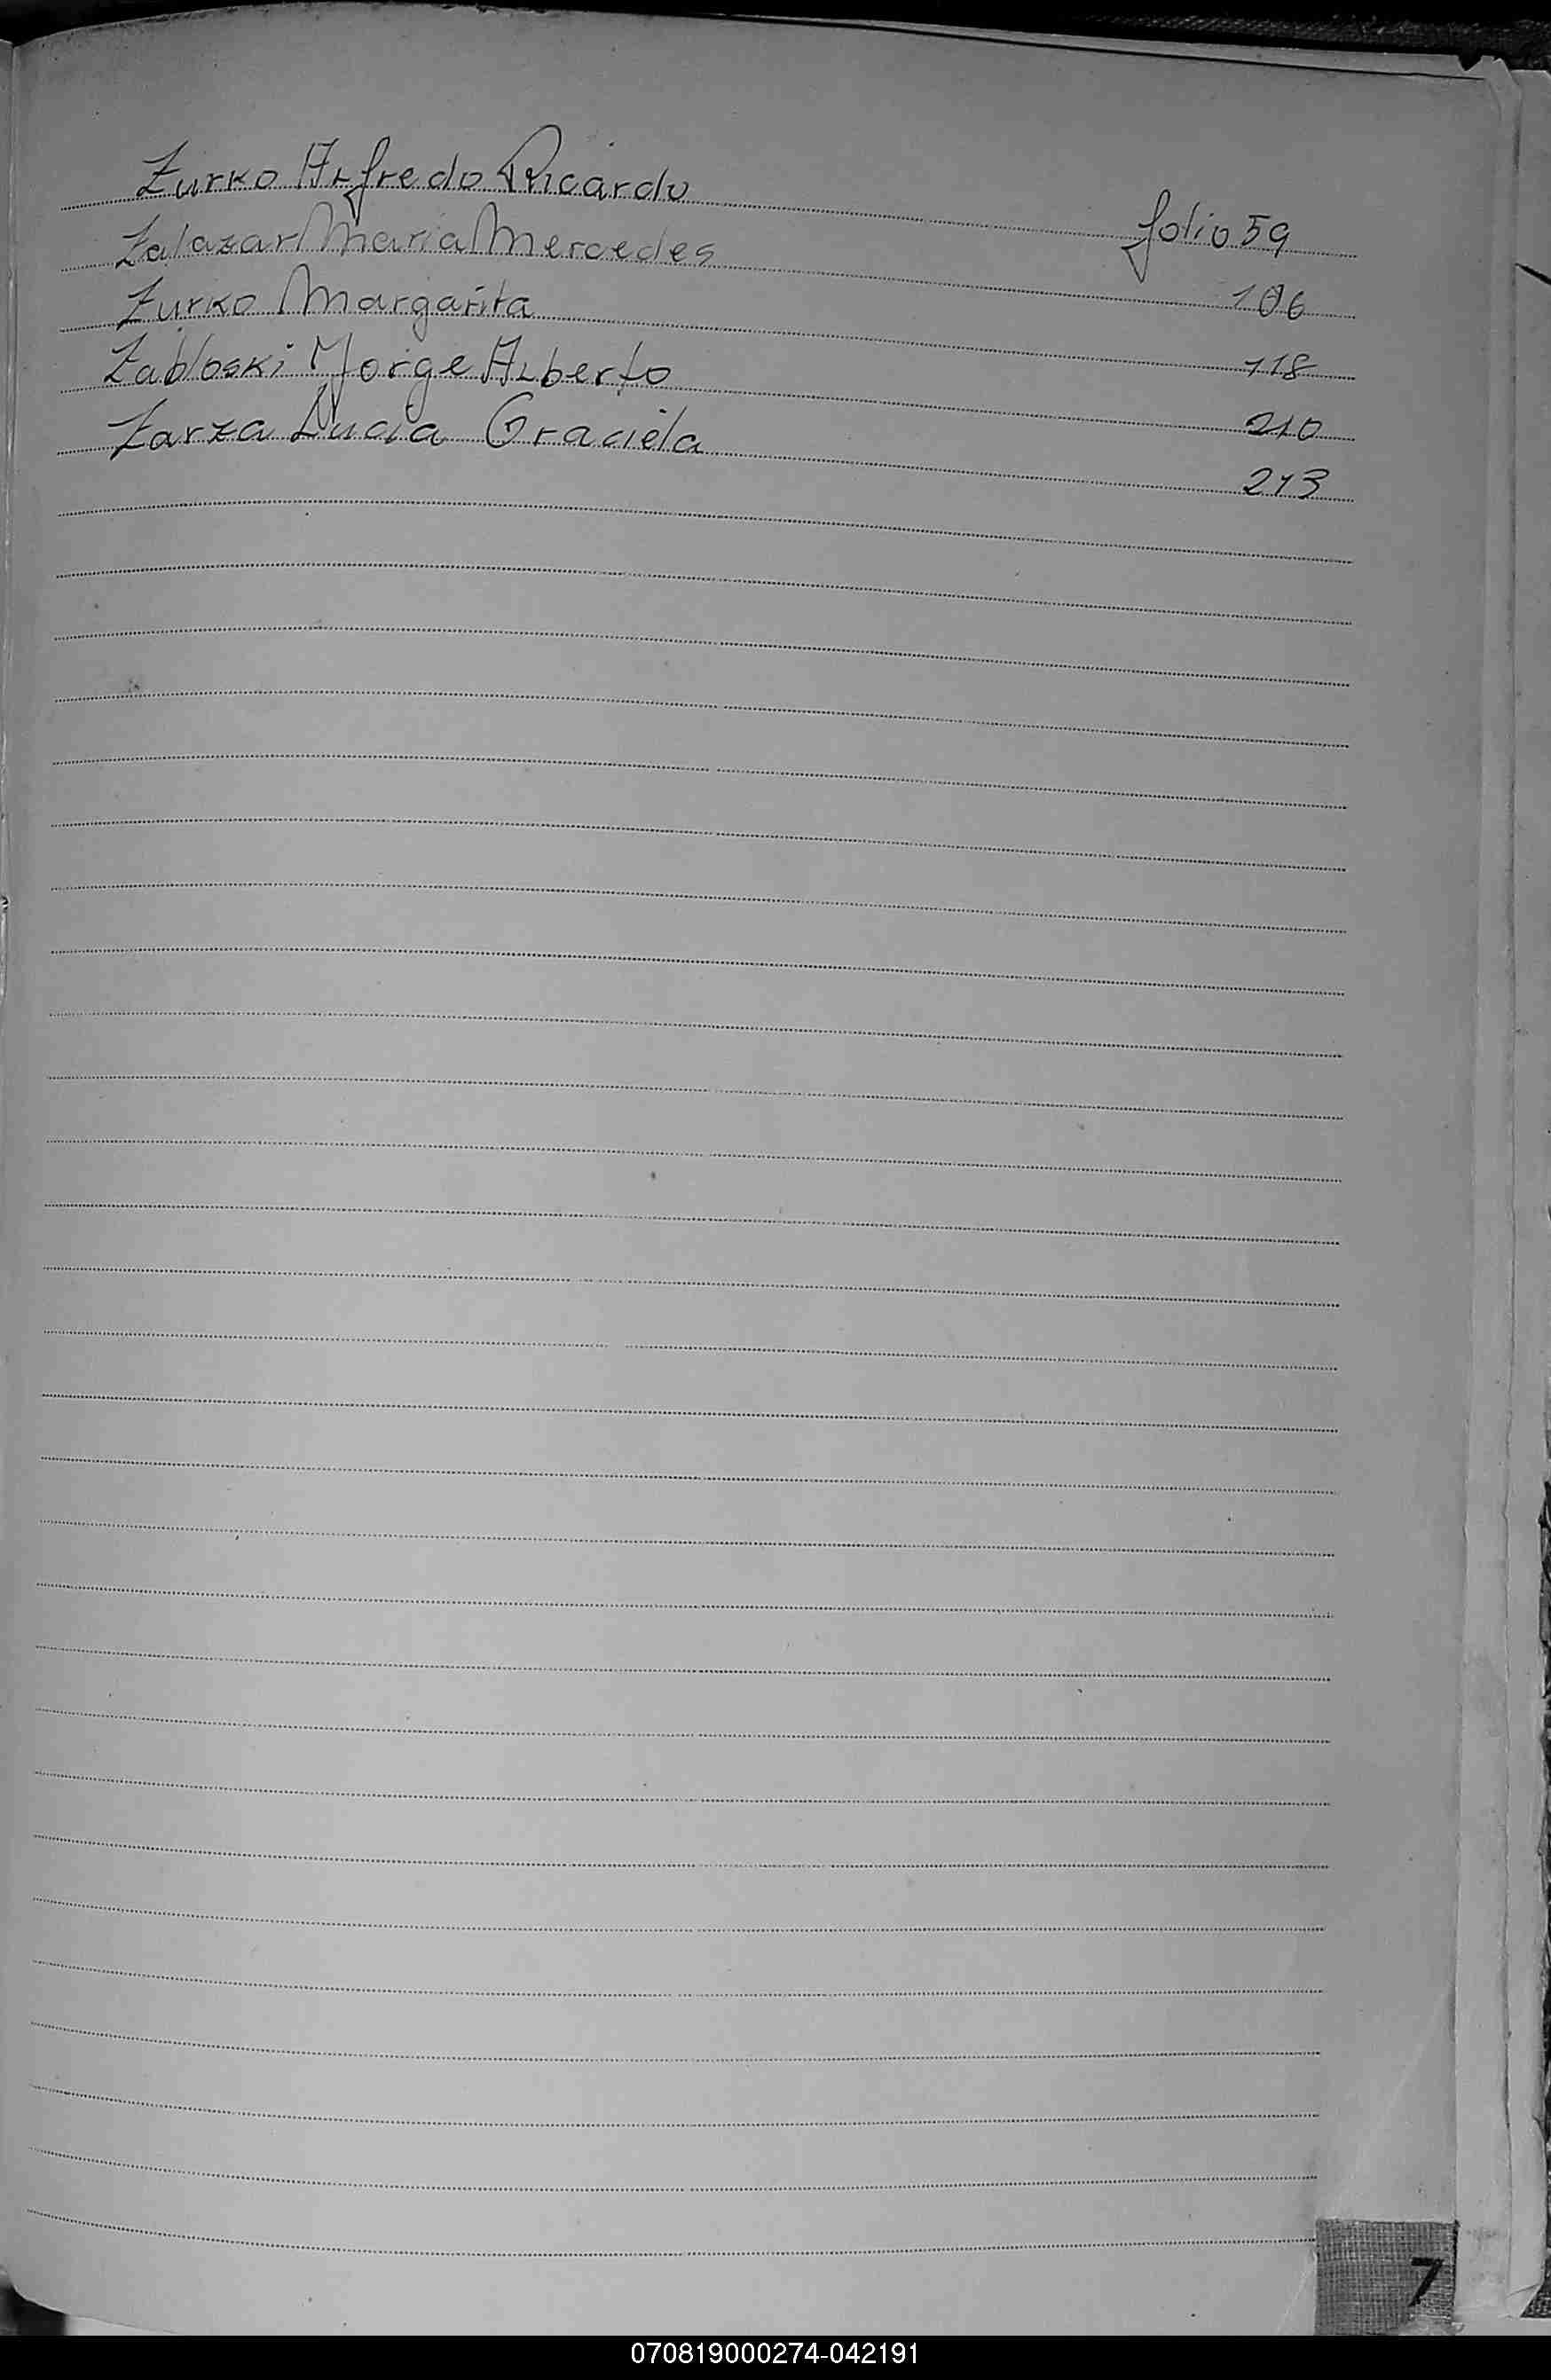 Zurko Alfredo Ricardo folio 59
Zalazar Maria Mercedes 106
Zurko Margarita 118
Zabloski Jorge Alberto 210
Zarza Lucia Graciela 213
Z
070819000274-042191